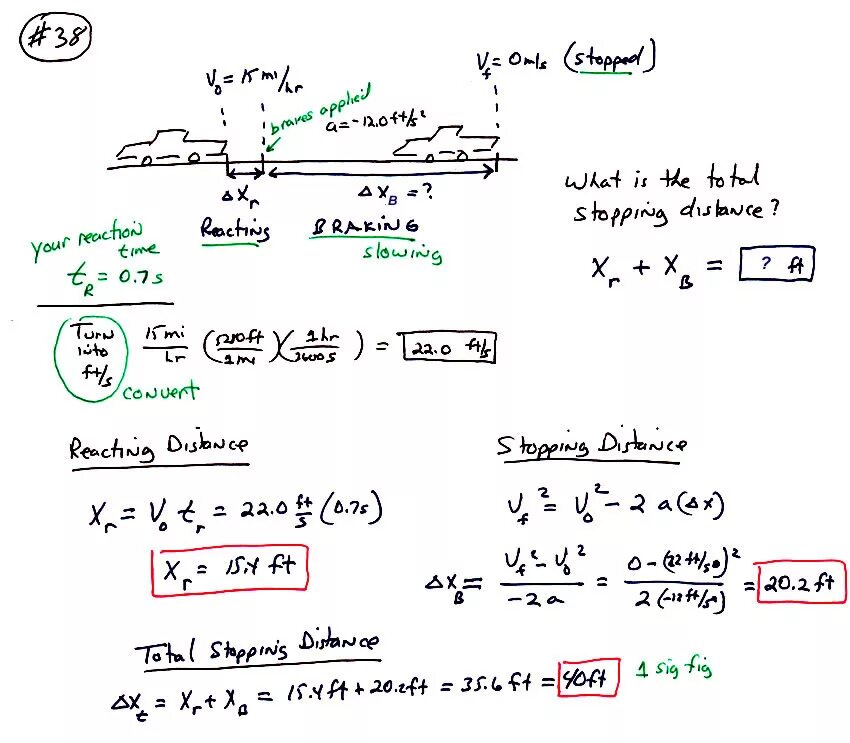 #38
V₀ = 15 mi/hr
V_f = 0 m/s (stopped)
brakes applied
a = -12.0 ft/s²
ΔX_r
ΔX_B = ?
Reacting
BRAKING
slowing
What is the total
stopping distance?
X_r + X_B = ? ft
your reaction
time
t_R = 0.7s
Turn into ft/s
15 mi/hr (5280ft/1mi)(1hr/3600s) = 22.0 ft/s
convert
Reacting Distance
X_r = V₀ t_r = 22.0 ft/s (0.7s)
X_r = 15.4 ft
Stopping Distance
V_f² = V₀² - 2 a (Δx)
ΔX_B = (V_f² - V₀²)/(-2a) = (0 - (22 ft/s)²)/(2(-12 ft/s²)) = 20.2 ft
Total Stopping Distance
ΔX_t = X_r + X_B = 15.4 ft + 20.2 ft = 35.6 ft = 40 ft
1 sig fig